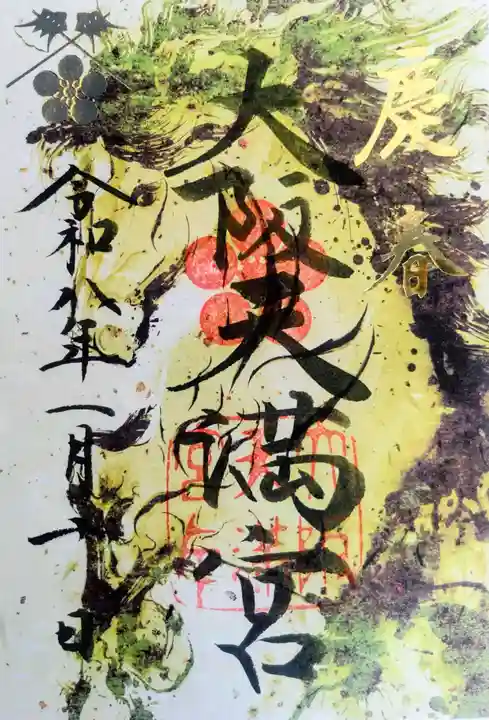 慶春
大阪天満宮
令和八年一月六日